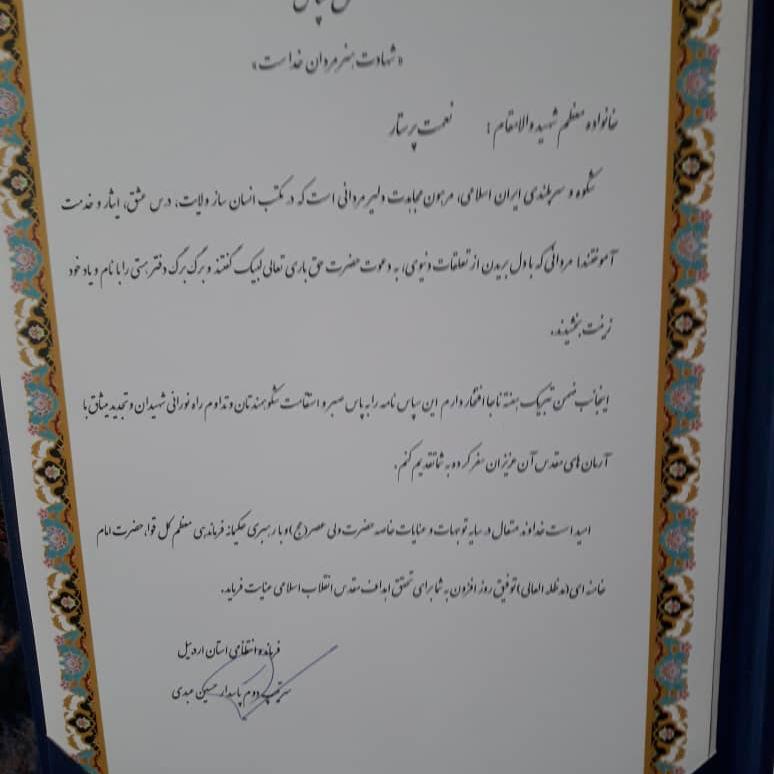 «شهادت هنر مردان خداست»
خانواده معظم شهید والامقام: نعمت پرستار
شکوه و سربلندی ایران اسلامی، مرهون مجاهدت دلیر مردانی است که در مکتب انسان ساز ولایت، درس عشق، ایثار و خدمت
آموختند؛ مردانی که با دل بریدن از تعلقات دنیوی، به دعوت حضرت حق باری تعالی لبیک گفتند و برگ برگ دفتر هستی را با نام و یاد خود
زینت بخشیدند.
اینجانب ضمن تبریک هفته ناجا افتخار دارم این سپاس نامه را به پاس صبر و استقامت شکوهمندتان و تداوم راه نورانی شهیدان و تجدید میثاق با
آرمان های مقدس آن عزیزان سفر کرده به شما تقدیم کنم.
امید است خداوند متعال در سایه توجهات و عنایات خاصه حضرت ولی عصر (عج) و با رهبری حکیمانه فرماندهی معظم کل قوا، حضرت امام
خامنه ای (مدظله العالی) توفیق روز افزون به شما برای تحقق اهداف مقدس انقلاب اسلامی عنایت فرماید.
فرمانده انتظامی استان اردبیل
سرتیپ دوم پاسدار حسین عبدی